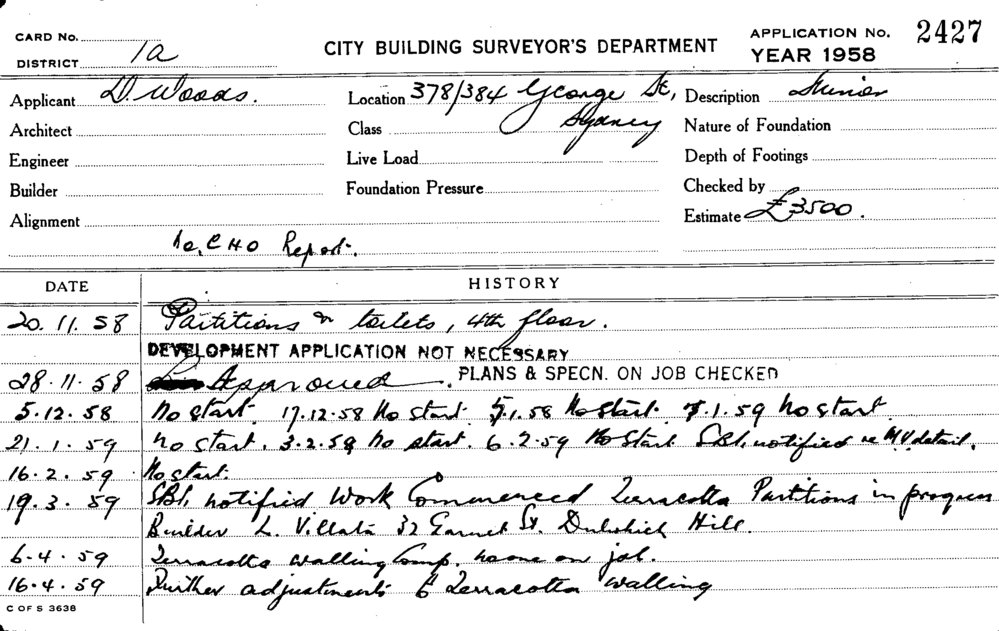 CARD No.
DISTRICT 1a
CITY BUILDING SURVEYOR'S DEPARTMENT
APPLICATION No. 2427
YEAR 1958
Applicant D. Woods.
Location 378/384 George St,
Sydney
Description Minor
Architect
Class
Nature of Foundation
Engineer
Live Load
Depth of Footings
Builder
Foundation Pressure
Checked by
Alignment
Estimate £3500.
C H O Report.
DATE HISTORY
20.11.58 Partitions & toilets, 4th floor.
DEVELOPMENT APPLICATION NOT NECESSARY
28.11.58 Approved. PLANS & SPECN. ON JOB CHECKED
5.12.58 No start. 17.12.58 No start. 5.1.58 No start. 7.1.59 No start
21.1.59 No start. 3.2.59 No start. 6.2.59 No start S.B.I. notified re M.V. detail.
16.2.59 No start.
19.3.59 S.B.I. notified Work Commenced Terracotta Partitions in progress
Builder L. Villata 32 Garnet St. Dulwich Hill.
6.4.59 Terracotta walling Comp. no one on job.
16.4.59 Further adjustments to Terracotta walling
C OF S 3638